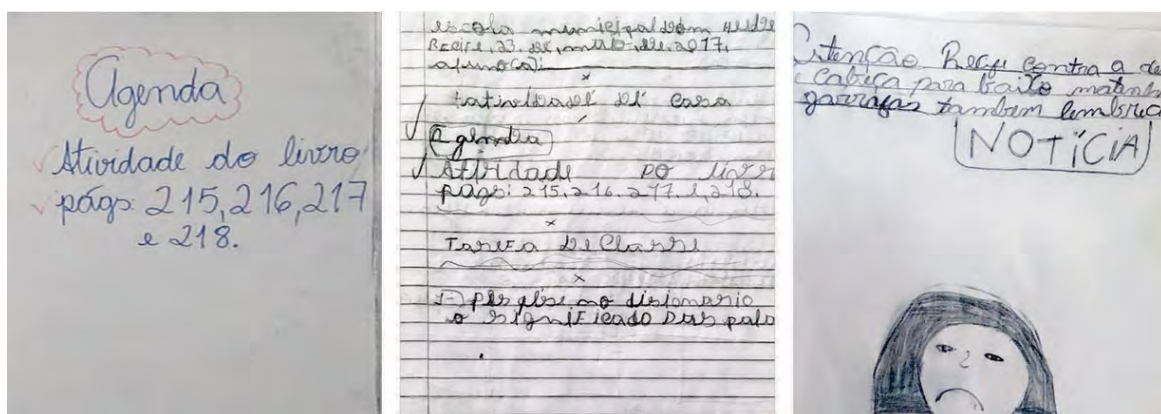 Agenda
Atividade do livro
págs: 215,216,217
e 218.
escola municipal Dom
RECIFE, 23. DE, maio, DE. 2017.
x
DE casa
Agenda
Atividade DO livro
págs: 215,216.217.e,218.
x
Tarefa DE Classe
x
1-)
o SIGNIFICADO DAS pala
Atenção Recife contra a de
cabeça para baixo
garrafas tambem
NOTÍCIA